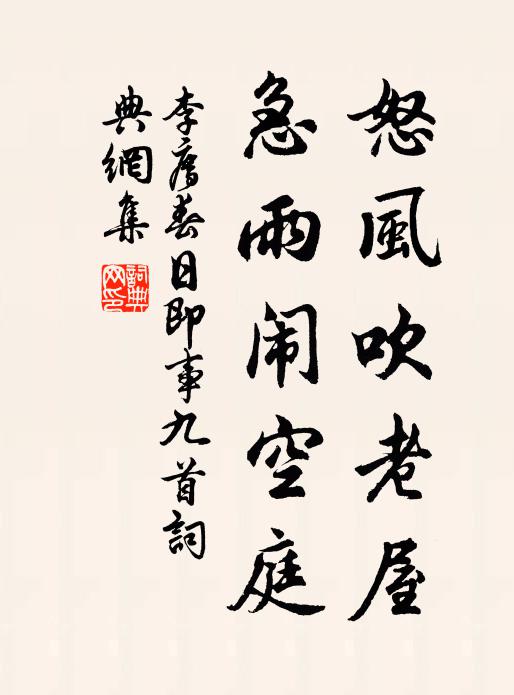 怒風吹老屋
急雨闹空庭
李廌春日即事九首詞
典網集
詞典
网印